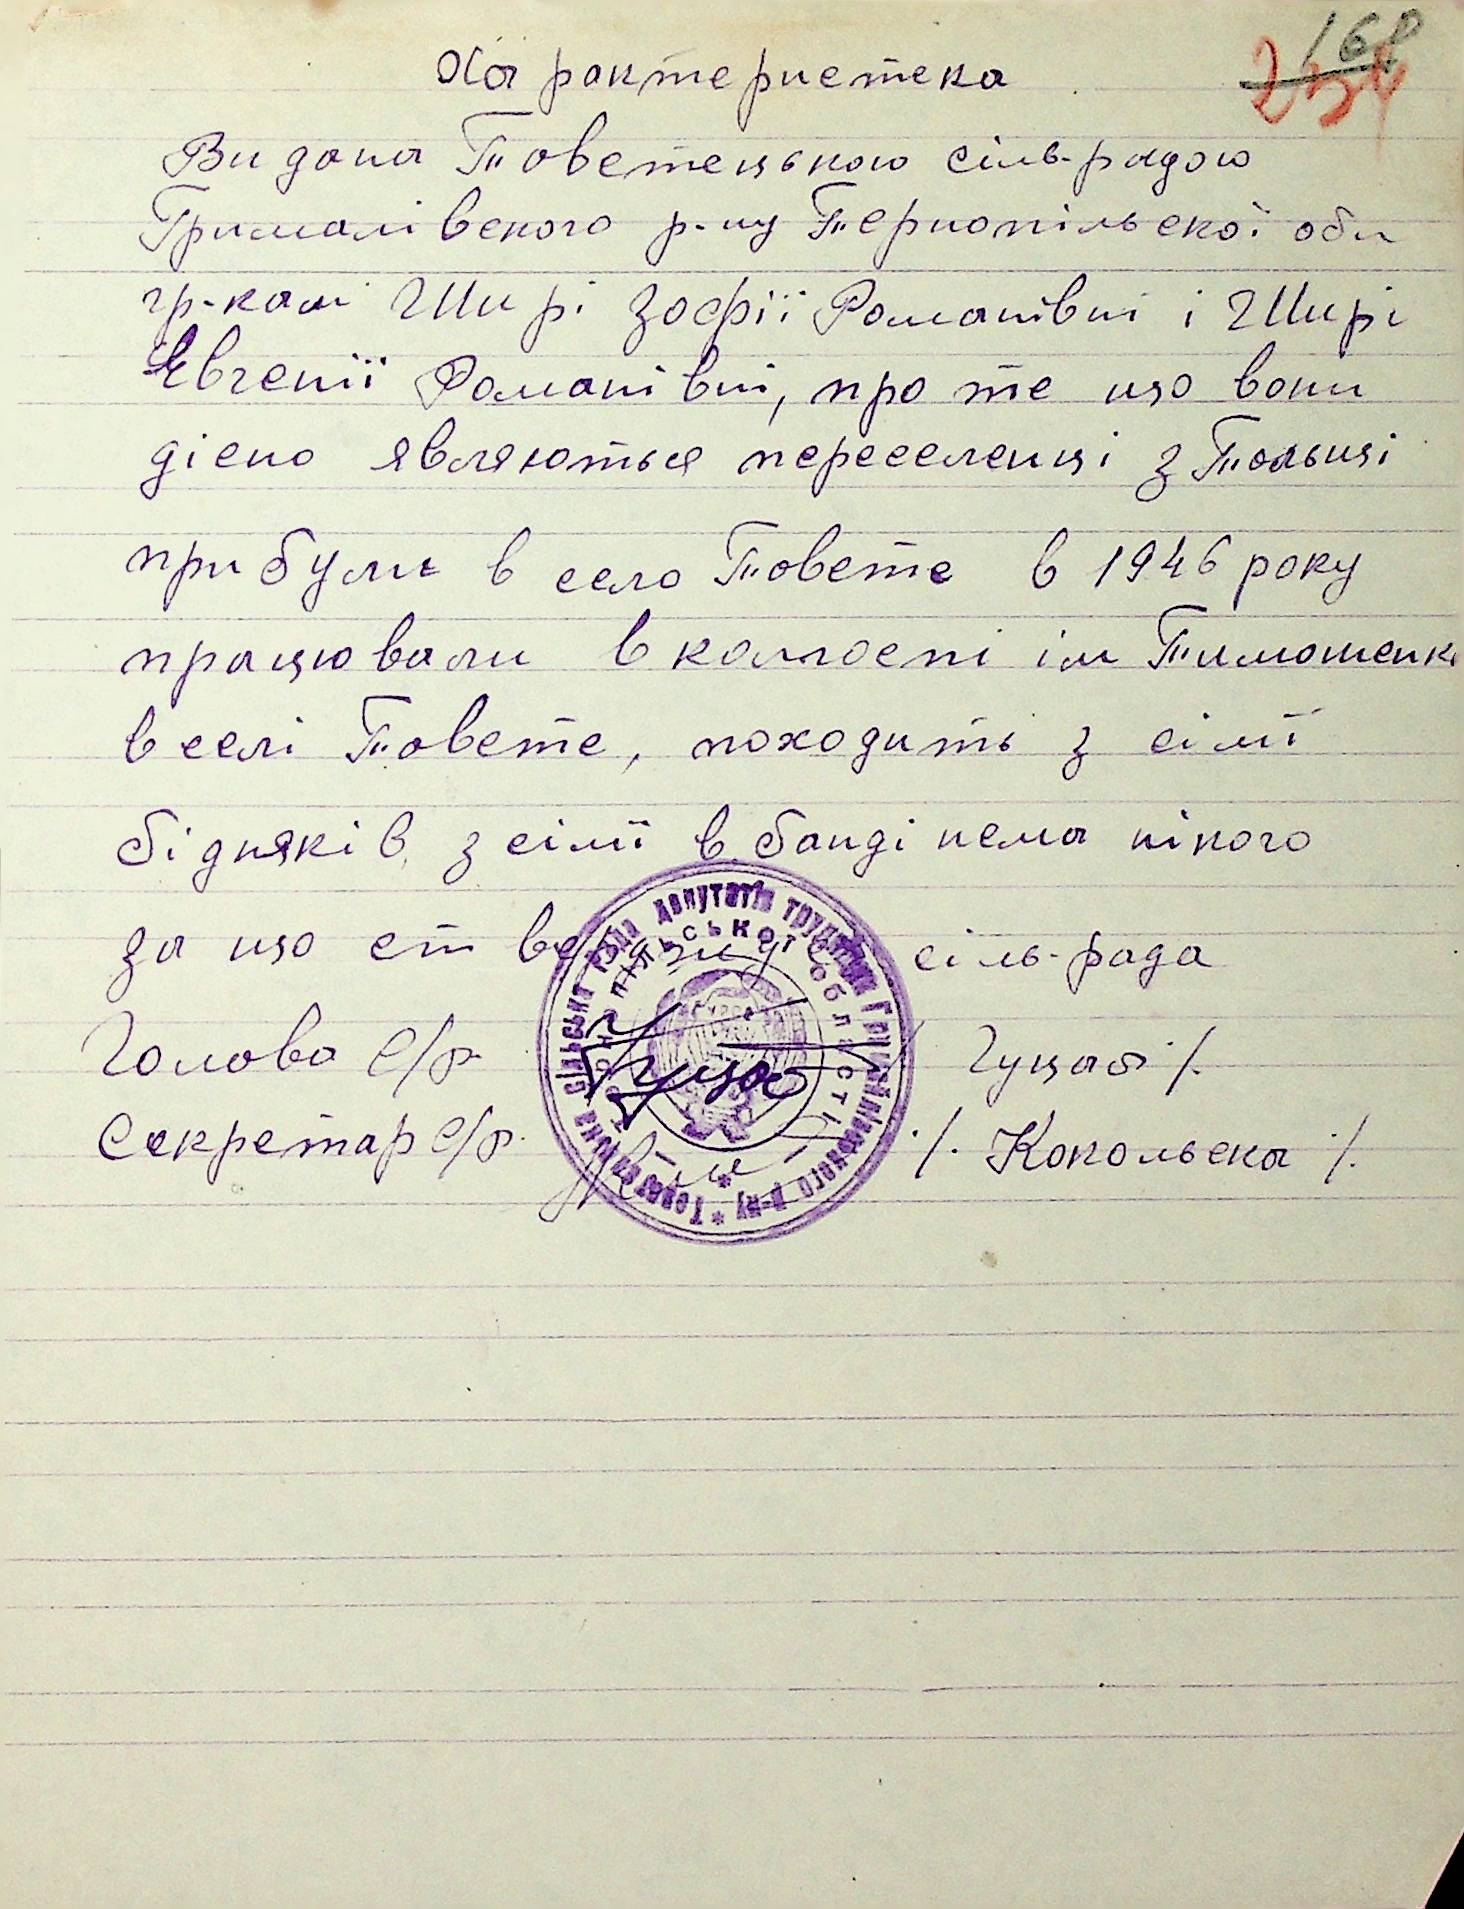 168
254
Характеристека
Видана Товстецькою сіль-радою
Грималівского р-ну Тернопільскої обл
гр-кам Ширі Зофії Романівні і Ширі
Євгенії Романівні, про те що вони
дісно являються переселенці з Польщі
прибули в село Товсте в 1946 року
працювали в колгоспі ім Тимошенк
в селі Товсте, походить з сімї
бідняків з сімї в банді нема нікого
за що стверджує сіль-рада
Голова с/р Гуцал /.
Секретар с/р. /. Копольска /.
сільська рада депутатів трудящих Гримайлівського р-ну
Тернопільської області